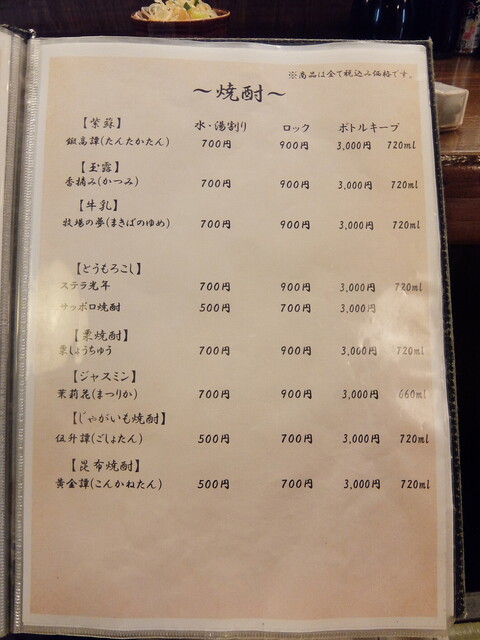 ※商品は全て税込み価格です。
～焼酎～
【紫蘇】 水・湯割り ロック ボトルキープ
鍛高譚(たんたかたん) 700円 900円 3,000円 720ml
【玉露】
香摘み(かつみ) 700円 900円 3,000円 720ml
【牛乳】
牧場の夢(まきばのゆめ) 700円 900円 3,000円 720ml
【とうもろこし】
ステラ光年 700円 900円 3,000円 720ml
サッポロ焼酎 500円 700円 3,000円
【栗焼酎】
栗しょうちゅう 700円 900円 3,000円 720ml
【ジャスミン】
茉莉花(まつりか) 700円 900円 3,000円 660ml
【じゃがいも焼酎】
伍升譚(ごしょたん) 500円 700円 3,000円 720ml
【昆布焼酎】
黄金譚(こんかねたん) 500円 700円 3,000円 720ml